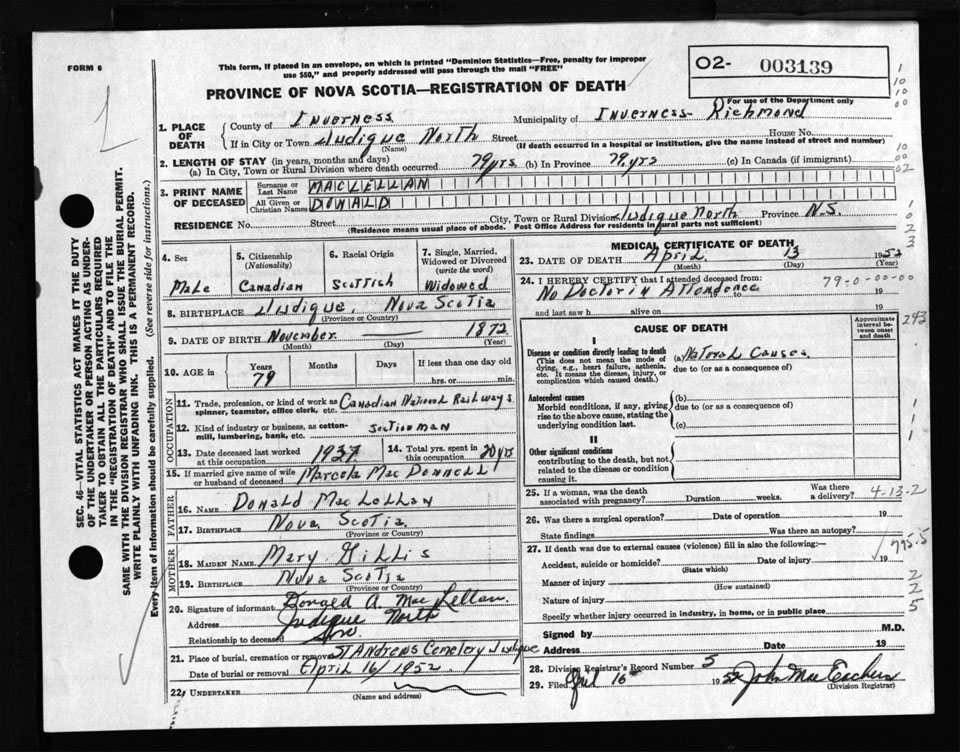 FORM 6
This form, if placed in an envelope, on which is printed "Dominion Statistics—Free, penalty for improper
use $50," and properly addressed will pass through the mail "FREE"
O2- 003139
For use of the Department only
PROVINCE OF NOVA SCOTIA—REGISTRATION OF DEATH
1. PLACE OF DEATH
County of Inverness Municipality of Inverness- Richmond
If in City or Town Judique North Street House No.
(Name) (If death occurred in a hospital or institution, give the name instead of street and number)
2. LENGTH OF STAY (in years, months and days)
(a) In City, Town or Rural Division where death occurred 79yrs. (b) In Province 79.yrs (c) In Canada (if immigrant)
3. PRINT NAME OF DECEASED
Surname or Last Name MACLELLAN
All Given or Christian Names DONALD
RESIDENCE No. Street City, Town or Rural Division Judique North Province N.S.
(Residence means usual place of abode. Post Office Address for residents in rural parts not sufficient)
4. Sex
Male
5. Citizenship (Nationality)
Canadian
6. Racial Origin
Scottish
7. Single, Married, Widowed or Divorced (write the word)
Widowed
8. BIRTHPLACE Judique, Nova Scotia
(Province or Country)
9. DATE OF BIRTH November 1872
(Month) (Day) (Year)
10. AGE in Years Months Days If less than one day old
79 hrs. or min.
OCCUPATION
11. Trade, profession, or kind of work as spinner, teamster, office clerk, etc. Canadian National Railways
12. Kind of industry or business, as cotton-mill, lumbering, bank, etc. Sectionman
13. Date deceased last worked at this occupation 1937
14. Total yrs. spent in this occupation 20 yrs
15. If married give name of wife or husband of deceased Marcela MacDonnell
FATHER
16. NAME Donald MacLellan
17. BIRTHPLACE Nova Scotia
(Province or Country)
MOTHER
18. MAIDEN NAME Mary Gillis
19. BIRTHPLACE Nova Scotia
(Province or Country)
20. Signature of informant Donald A. MacLellan.
Address Judique North
Relationship to deceased Son
21. Place of burial, cremation or removal St Andrews Cemetery Judique
Date of burial or removal April 16/1952.
22. UNDERTAKER
(Name and address)
MEDICAL CERTIFICATE OF DEATH
23. DATE OF DEATH April 13 1952
(Month) (Day) (Year)
24. I HEREBY CERTIFY that I attended deceased from:
79-0-00-00
No Doctor in Attendence to 19
and last saw h alive on 19
CAUSE OF DEATH
Approximate interval between onset and death
243
I
Disease or condition directly leading to death (a) Natural Causes
(This does not mean the mode of dying, e.g., heart failure, asthenia, etc. It means the disease, injury, or complication which caused death.)
due to (or as a consequence of)
Antecedent causes
Morbid conditions, if any, giving rise to the above cause, stating the underlying condition last.
(b)
due to (or as a consequence of)
(c)
II
Other significant conditions contributing to the death, but not related to the disease or condition causing it.
25. If a woman, was the death associated with pregnancy? Duration weeks. Was there a delivery?
4-13-2
26. Was there a surgical operation? Date of operation 19
State findings Was there an autopsy?
27. If death was due to external causes (violence) fill in also the following:—
795.5
Accident, suicide or homicide? Date of injury 19
(State which)
Manner of injury
(How sustained)
Nature of injury
Specify whether injury occurred in industry, in home, or in public place
Signed by M.D.
Address Date 19
28. Division Registrar's Record Number 5
29. Filed April 16 1952 John MacEachern
(Division Registrar)
SEC. 46—VITAL STATISTICS ACT MAKES IT THE DUTY
OF THE UNDERTAKER OR PERSON ACTING AS UNDER-
TAKER TO OBTAIN ALL THE PARTICULARS REQUIRED
IN THE "REGISTRATION OF DEATH" AND TO FILE THE
SAME WITH THE DIVISION REGISTRAR WHO SHALL ISSUE THE BURIAL PERMIT.
WRITE PLAINLY WITH UNFADING INK. THIS IS A PERMANENT RECORD.
Every item of information should be carefully supplied. (See reverse side for instructions.)